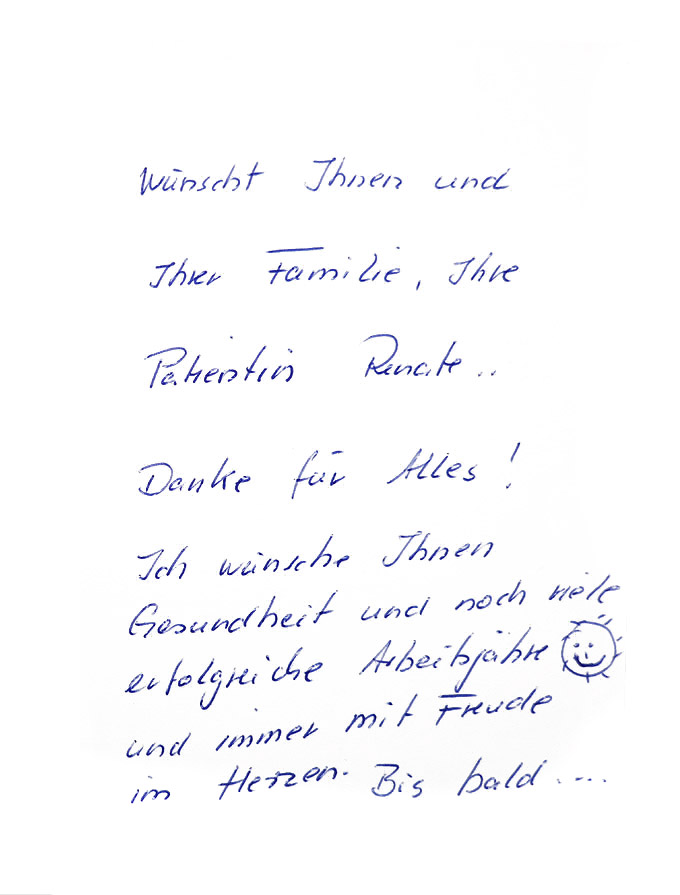 Wünscht Ihnen und
Ihrer Familie, Ihre
Patientin Renate..
Danke für Alles!
Ich wünsche Ihnen
Gesundheit und noch viele
erfolgreiche Arbeitsjähre
und immer mit Freude
im Herzen. Bis bald ....